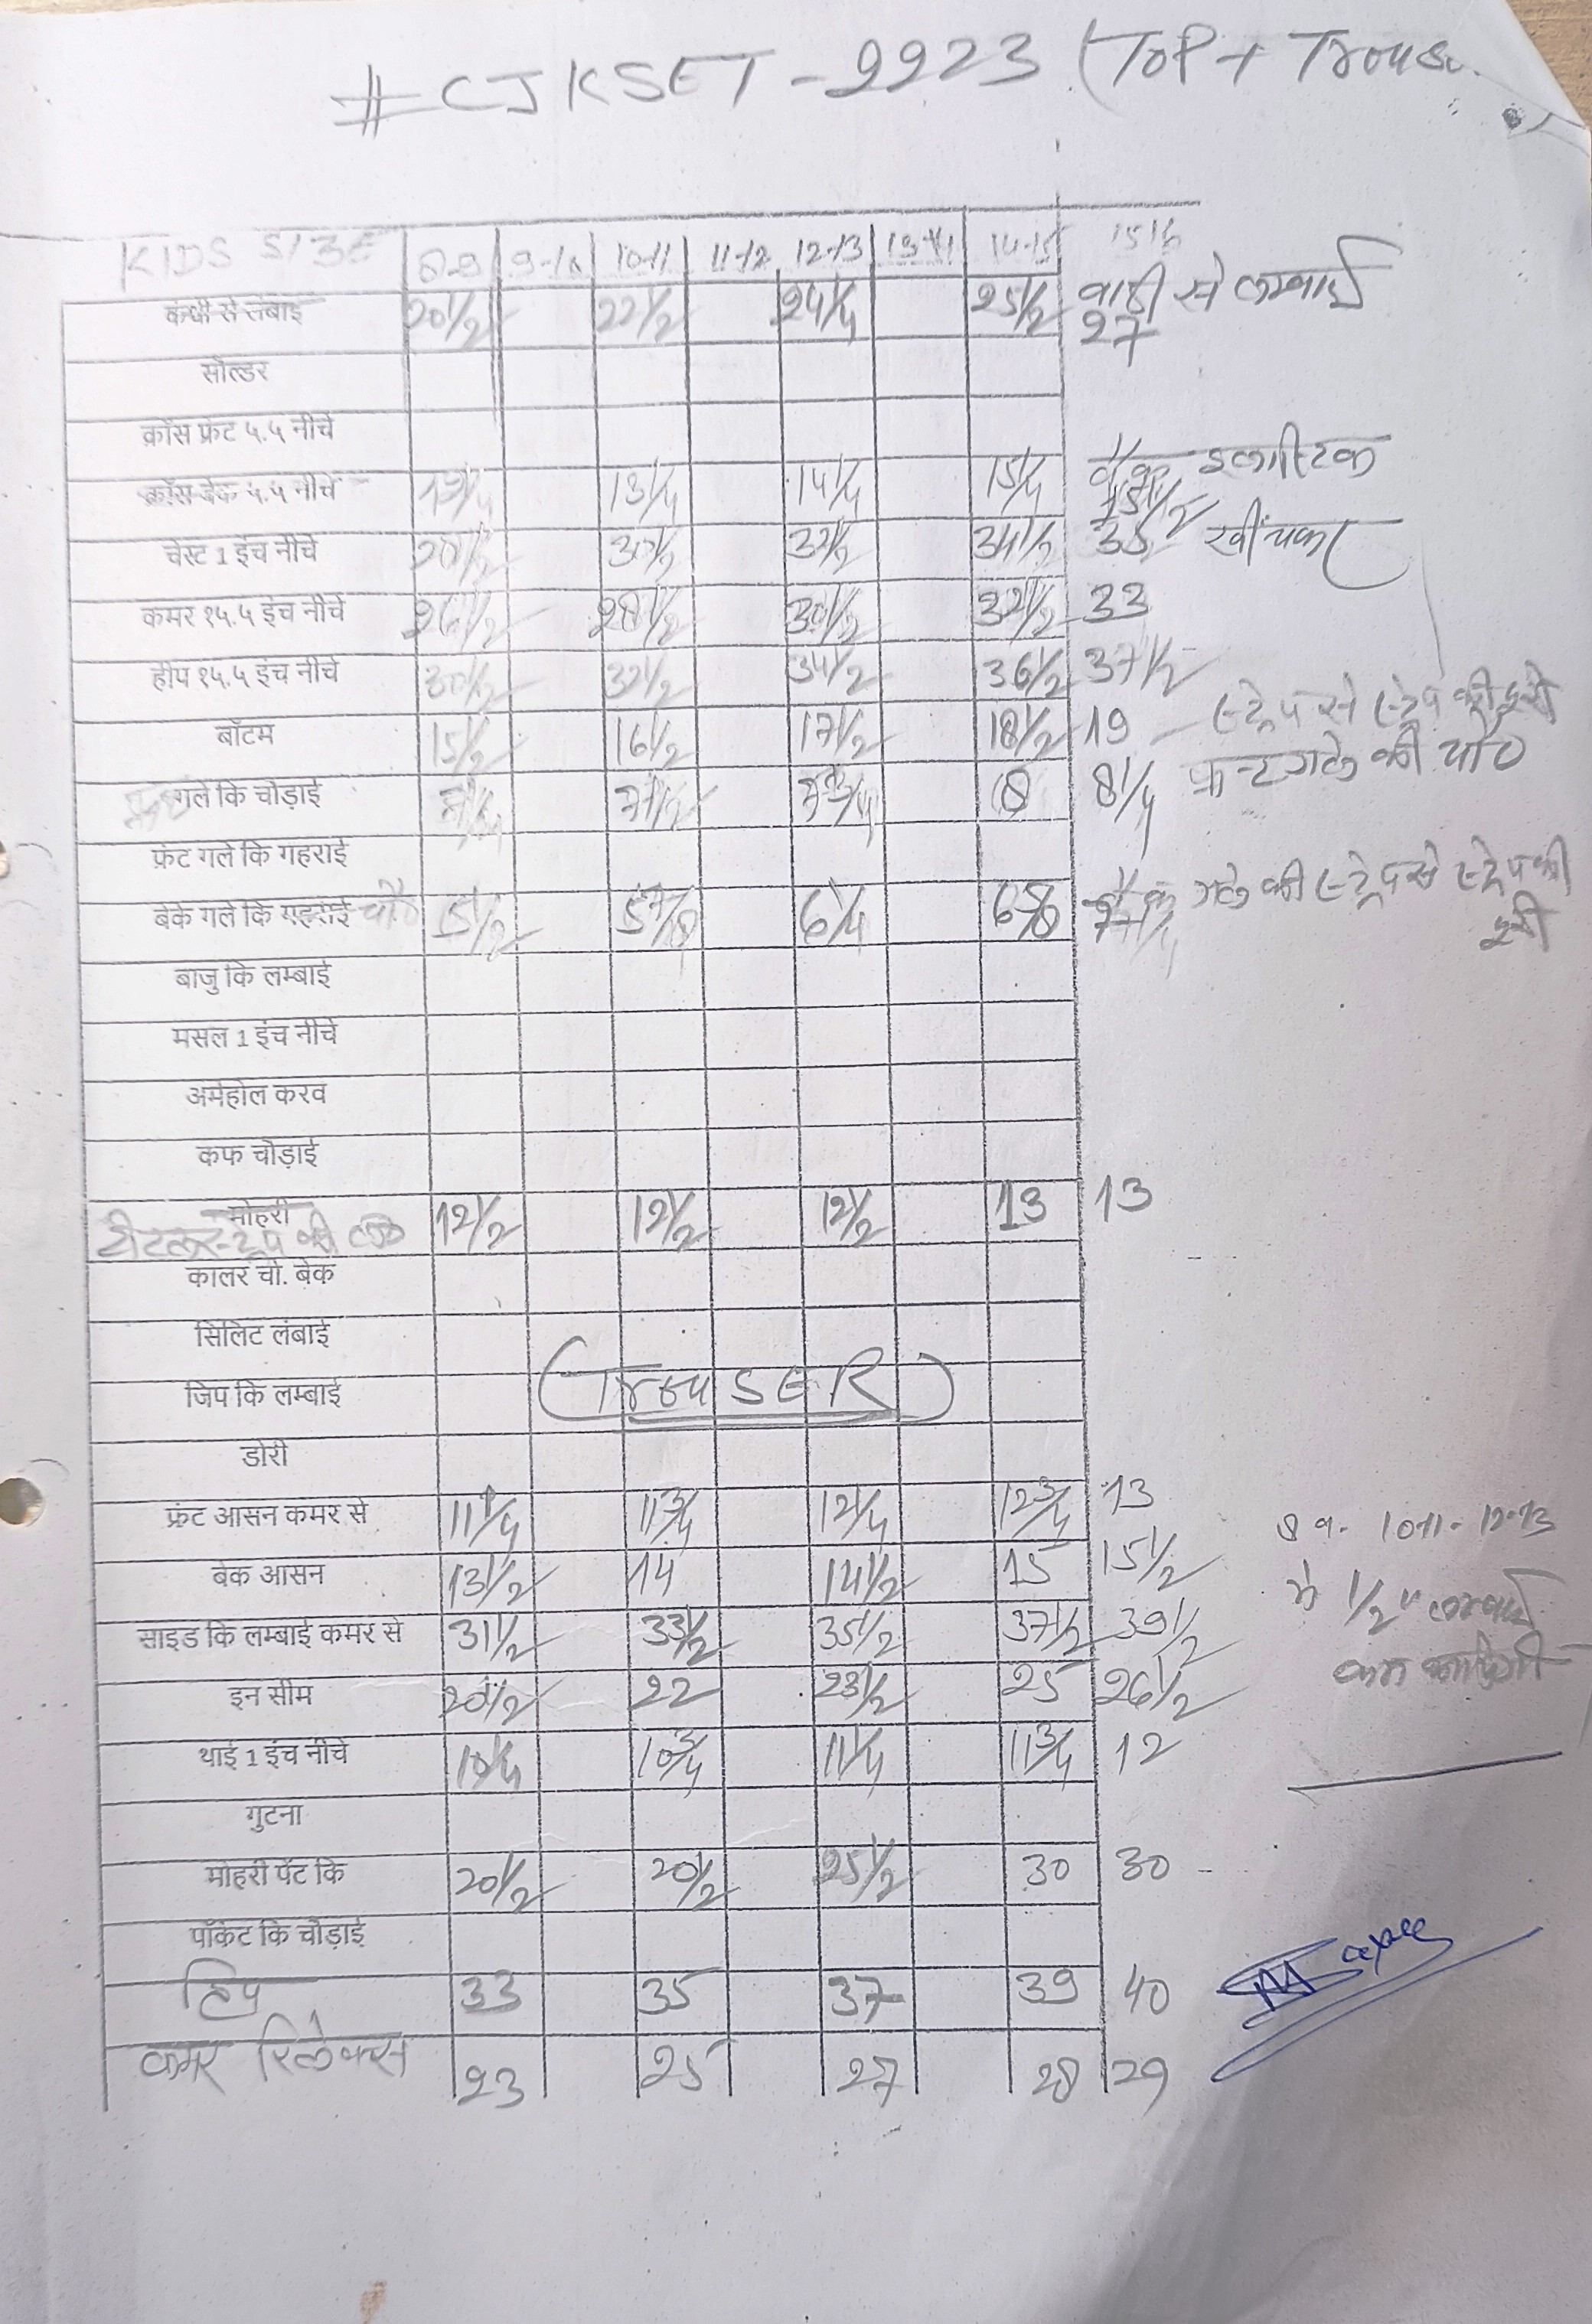 #CJKSET-2223 (TOP + Trous
KIDS SIZE 8-9 9-10 10-11 11-12 12-13 13-14 14-15 15 16
कंधे से लंबाई 20 1/2 22 1/2 24 1/4 25 1/2 से लम्बाई
27
सोल्डर
क्रॉस फ्रंट ५.५ नीचे
क्रॉस बेक ५.५ नीचे 13 1/4 14 1/4 15 1/4 बैक इलास्टिक
15 1/2
चेस्ट 1 इंच नीचे 30 1/2 32 1/2 34 1/2 35 खींचकर
कमर १५.५ इंच नीचे 26 1/2 28 1/2 30 1/2 32 1/2 33
हीप १५.५ इंच नीचे 30 1/2 32 1/2 34 1/2 36 1/2 37 1/2
बॉटम 15 1/2 16 1/2 17 1/2 18 1/2 19 स्ट्रेप से स्ट्रेप की दूरी
गले कि चोड़ाई 7 1/4 7 1/2 7 3/4 8 8 1/4 फ्रन्ट गले की चौ०
फ्रंट गले कि गहराई
बेक गले कि गहराई चौ० 5 1/2 5 7/8 6 1/4 6 5/8 बैक गले की स्ट्रेप से स्ट्रेप की
दूरी
बाजु कि लम्बाई
मसल 1 इंच नीचे
अर्महोल करव
कफ चोड़ाई
मोहरी 12 1/2 12 1/2 12 1/2 13 13
स्ट्रेप की
कालर चो. बेक
सिलिट लंबाई
(TrouSER)
जिप कि लम्बाई
डोरी
फ्रंट आसन कमर से 11 1/4 11 3/4 12 1/4 12 3/4 13
बेक आसन 13 1/2 14 14 1/2 15 15 1/2
साइड कि लम्बाई कमर से 31 1/2 33 1/2 35 1/2 37 1/2 39 1/2
इन सीम 20 1/2 22 23 1/2 25 26 1/2
थाई 1 इंच नीचे 10 1/4 10 3/4 11 1/4 11 3/4 12
गुटना
मोहरी पेंट कि 20 1/2 20 1/2 25 1/2 30 30
पॉकेट कि चोड़ाई
हिप 33 35 37 39 40
कमर रिलेक्स 23 25 27 28 29
8 9 - 10-11 - 12-13
मे 1/2" लम्बाई
कम